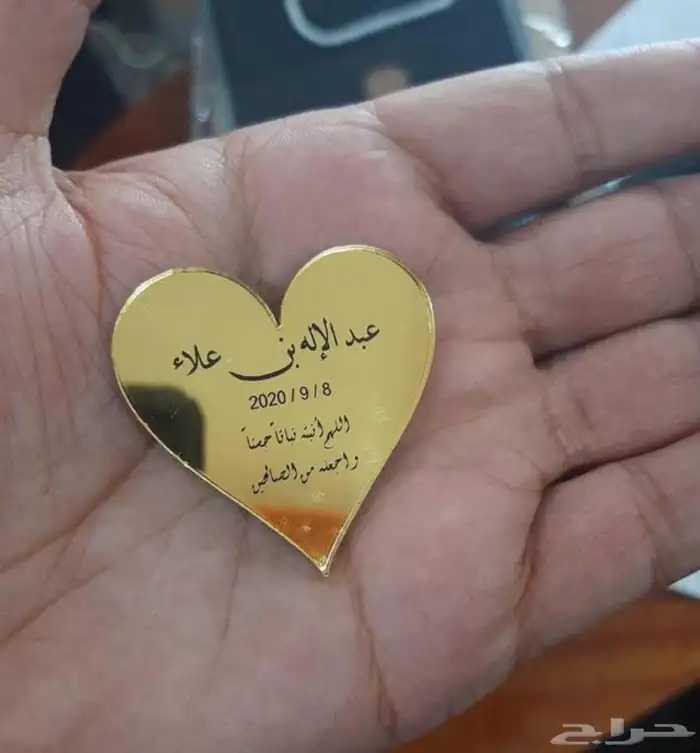 عبد الإله بن علاء
2020 / 9 / 8
اللهم أنبته نباتاً حسناً
واجعله من الصالحين
حراج